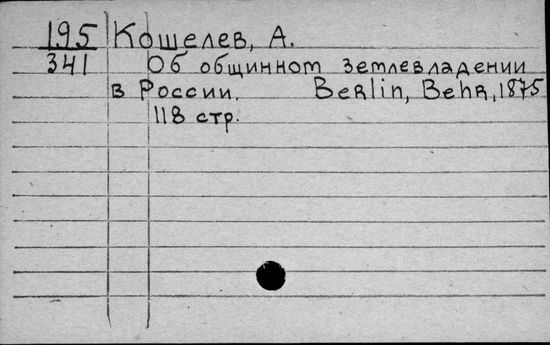 195 Кошелев, А.
341 Об общинном землевладении
в России. Berlin, Behr, 1875
118 стр.